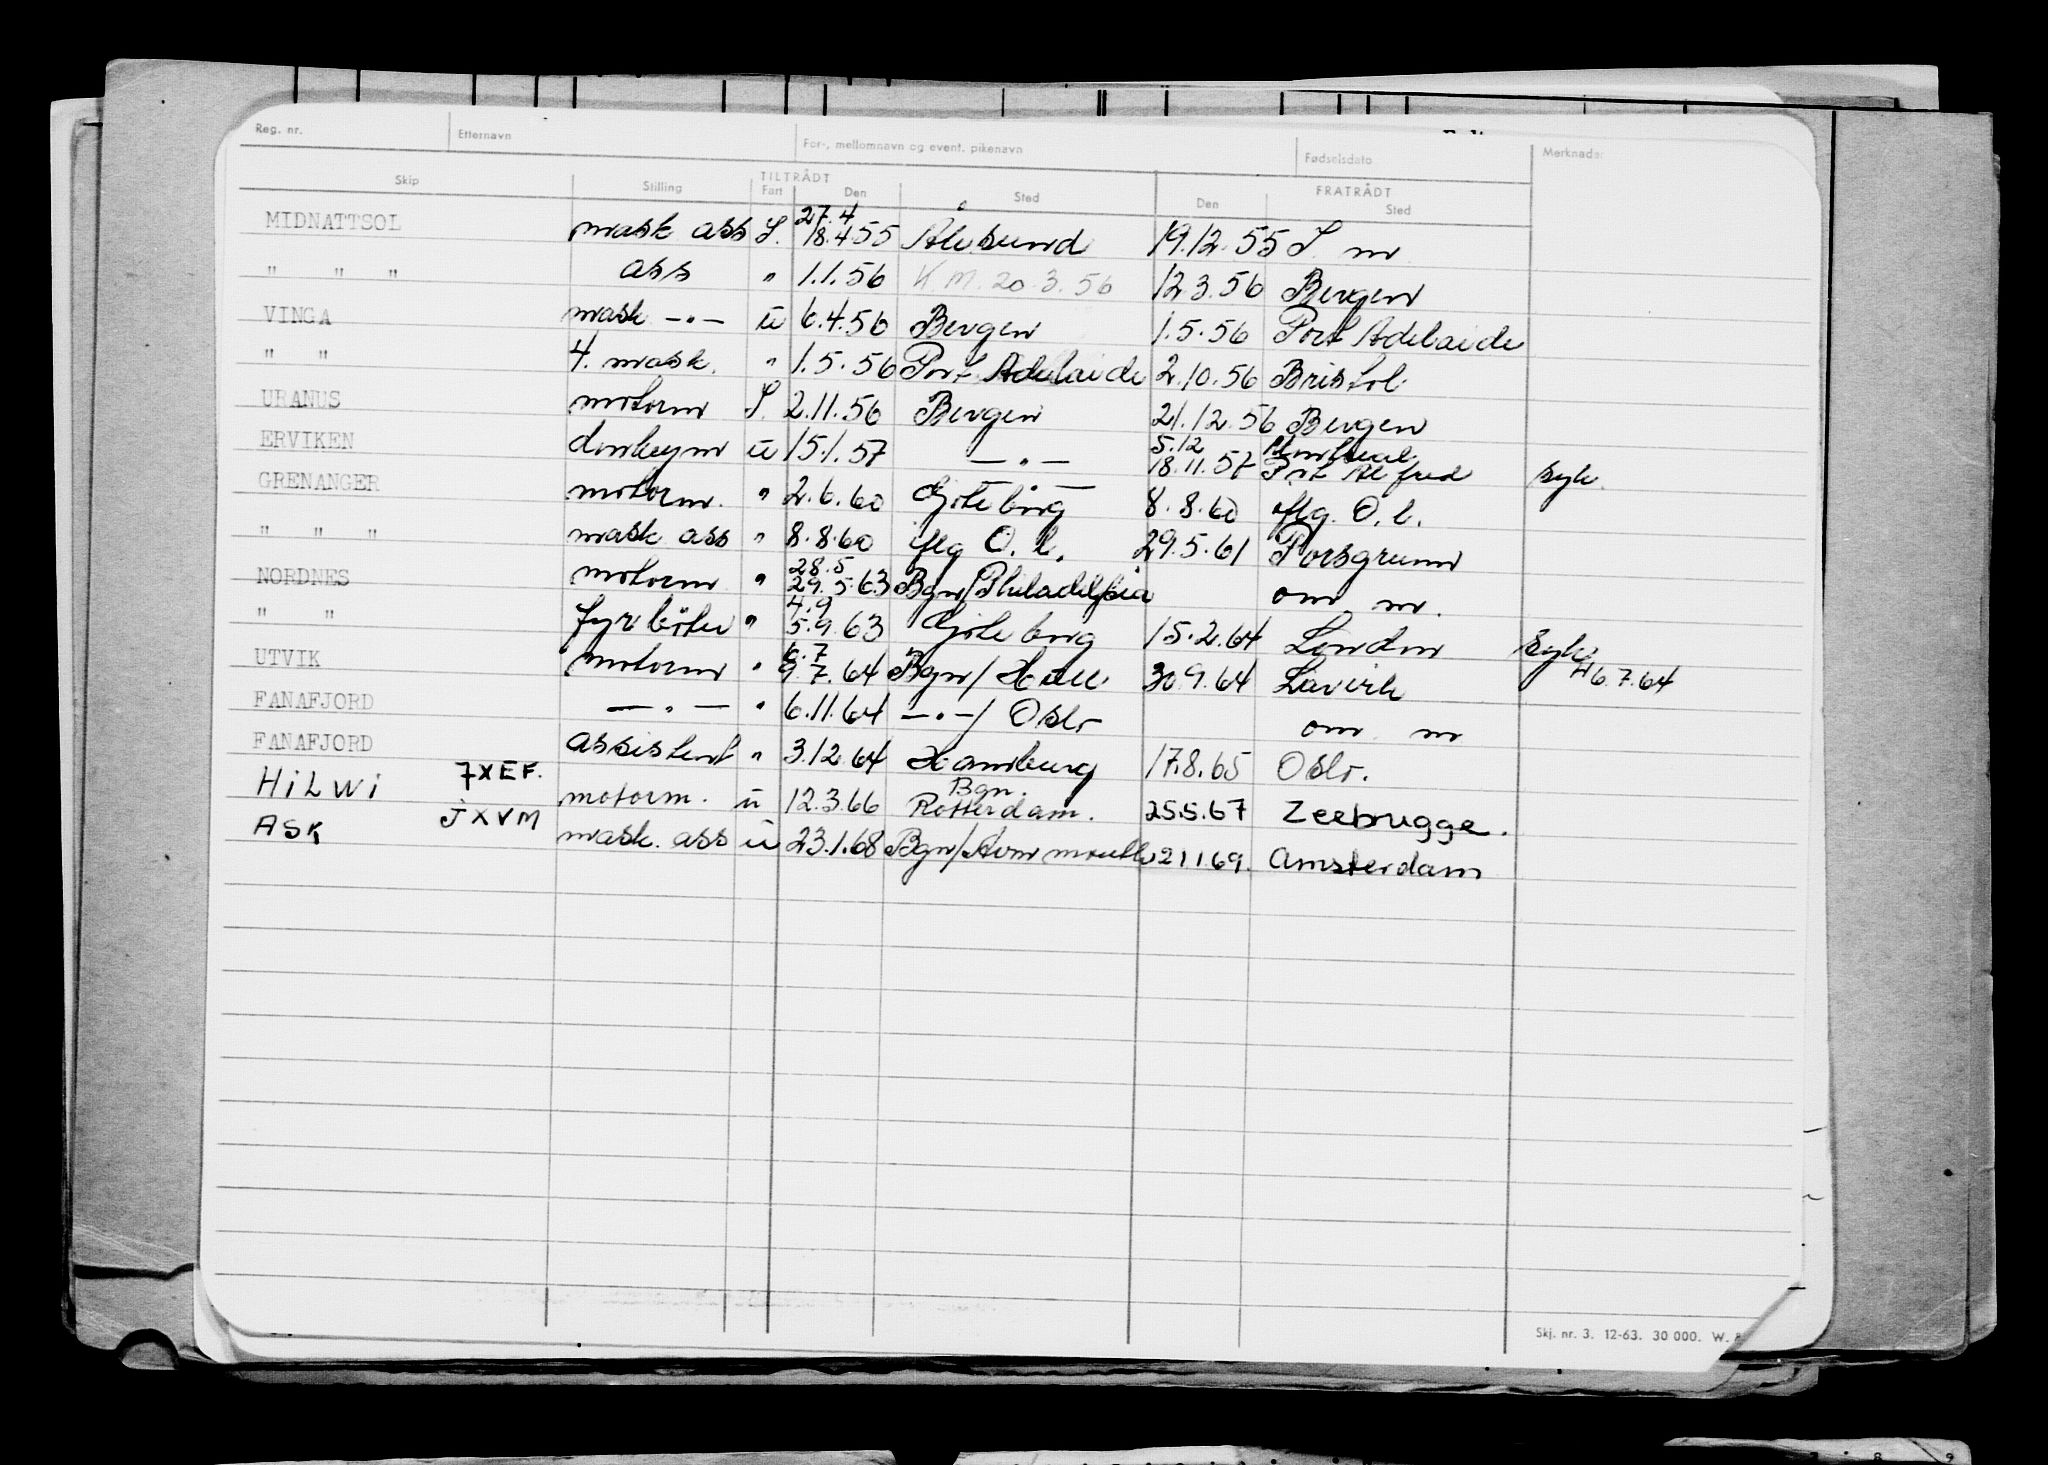 Reg. nr. Etternavn For-, mellomnavn og event. pikenavn Fødselsdato Merknader
Skip Stilling TILTRÅDT Fart Den Sted FRATRÅDT Den Sted
27.4
MIDNATTSOL mask ass S. 18.4 55 Ålesund 19.12.55 S. m
" " " ass " 1.1.56 K M. 20.3.56 12.3.56 Bergen
VINGA mask —"— u 6.4.56 Bergen 1.5.56 Port Adelaide
" " 4. mask. " 1.5.56 Port Adelaide 2.10.56 Bristol
URANUS motorm S. 2.11.56 Bergen 21.12.56 Bergen
5.12 Montreal
ERVIKEN donkeym u 15.1.57 —"— 18.11.57 Port Alfred syk.
GRENANGER motorm. " 2.6.60 Göteborg 8.8.60 iflg. O.l.
" " " mask ass " 8.8.60 iflg O.l. 29.5.61 Porsgrunn
28.5
NORDNES motorm " 29.5.63 Bgn/Philadelphia om m.
4.9
" " fyrböter " 5.9.63 Göteborg 15.2.64 London syk.
6.7
UTVIK motorm " 9.7.64 Bgn/Hull 30.9.64 Larvik 6.7.64
FANAFJORD —"— " 6.11.64 —"—/Oslo om m
FANAFJORD assistent " 3.12.64 Hamburg 17.8.65 Oslo.
Bgn.
HiLWi 7XEF. motorm. u 12.3.66 Rotterdam. 25.5.67 Zeebrugge.
ASK JXVM mask. ass u 23.1.68 Bgn/Avonmouth 21.1.69. Amsterdam
Skj. nr. 3. 12-63. 30 000. W.